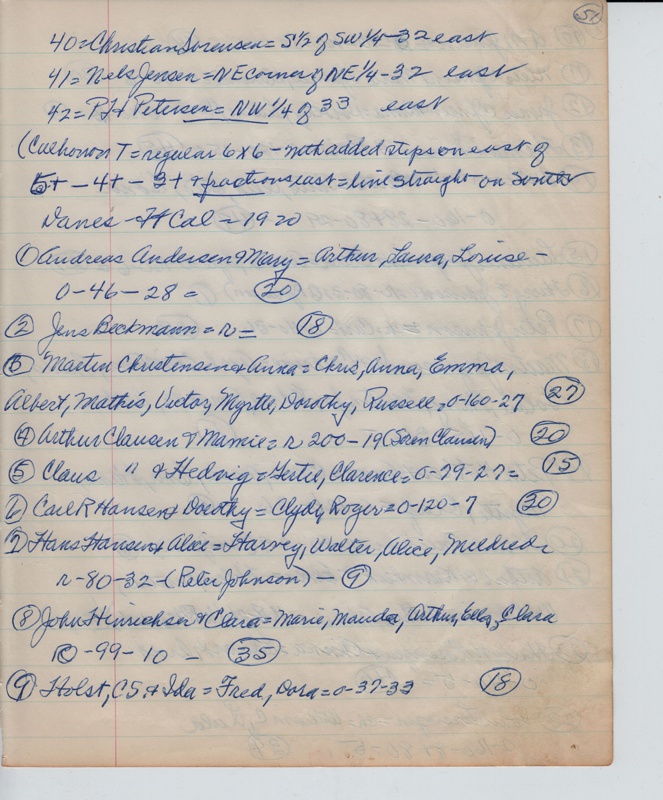 51
40=Christian Sorensen= S 1/2 of SW 1/4-32 east
41= Nels Jensen=NE corner of NE 1/4-32 east
42= P J+ Petersen= NW 1/4 of 33 east
(Calhoron T=regular 6x6 - north added steps on east of
5+ - 4+ - 3+ + fractions east=line straight on South
Danes - Ft Cal - 1920
① Andreas Andersen + Mary = Arthur, Laura, Louise -
0-46-28 = 20
② Jens Beckmann = r = 18
③ Martin Christensen + Anna = Chris, Anna, Emma,
Albert, Mathis, Victor, Myrtle, Dorothy, Russell=0-160-27 27
④ Arthur Clausen + Mamie= r 200-19 (Soren Clausen) 20
⑤ Claus " + Hedvig=Gertie, Clarence=0-79-27= 15
⑥ Carl R Hansen + Dorothy = Clyde, Roger=0-120-7 20
⑦ Hans Hansen + Alice=Harvey, Walter, Alice, Mildred=
r-80-32-(Peter Johnson) - 9
⑧ John Hinrichsen + Clara= Marie, Manda, Arthur, Ella, Clara
0-99-10 - 35
⑨ Holst, CS + Ida = Fred, Dora=0-37-33 18